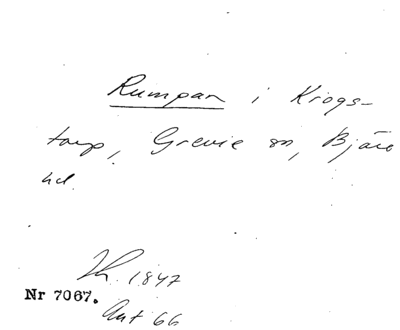 Rumpan i Krogs-
torp, Grevie sn, Bjäre
hd.
Th. 1847
Nr 7067.
Ant 66